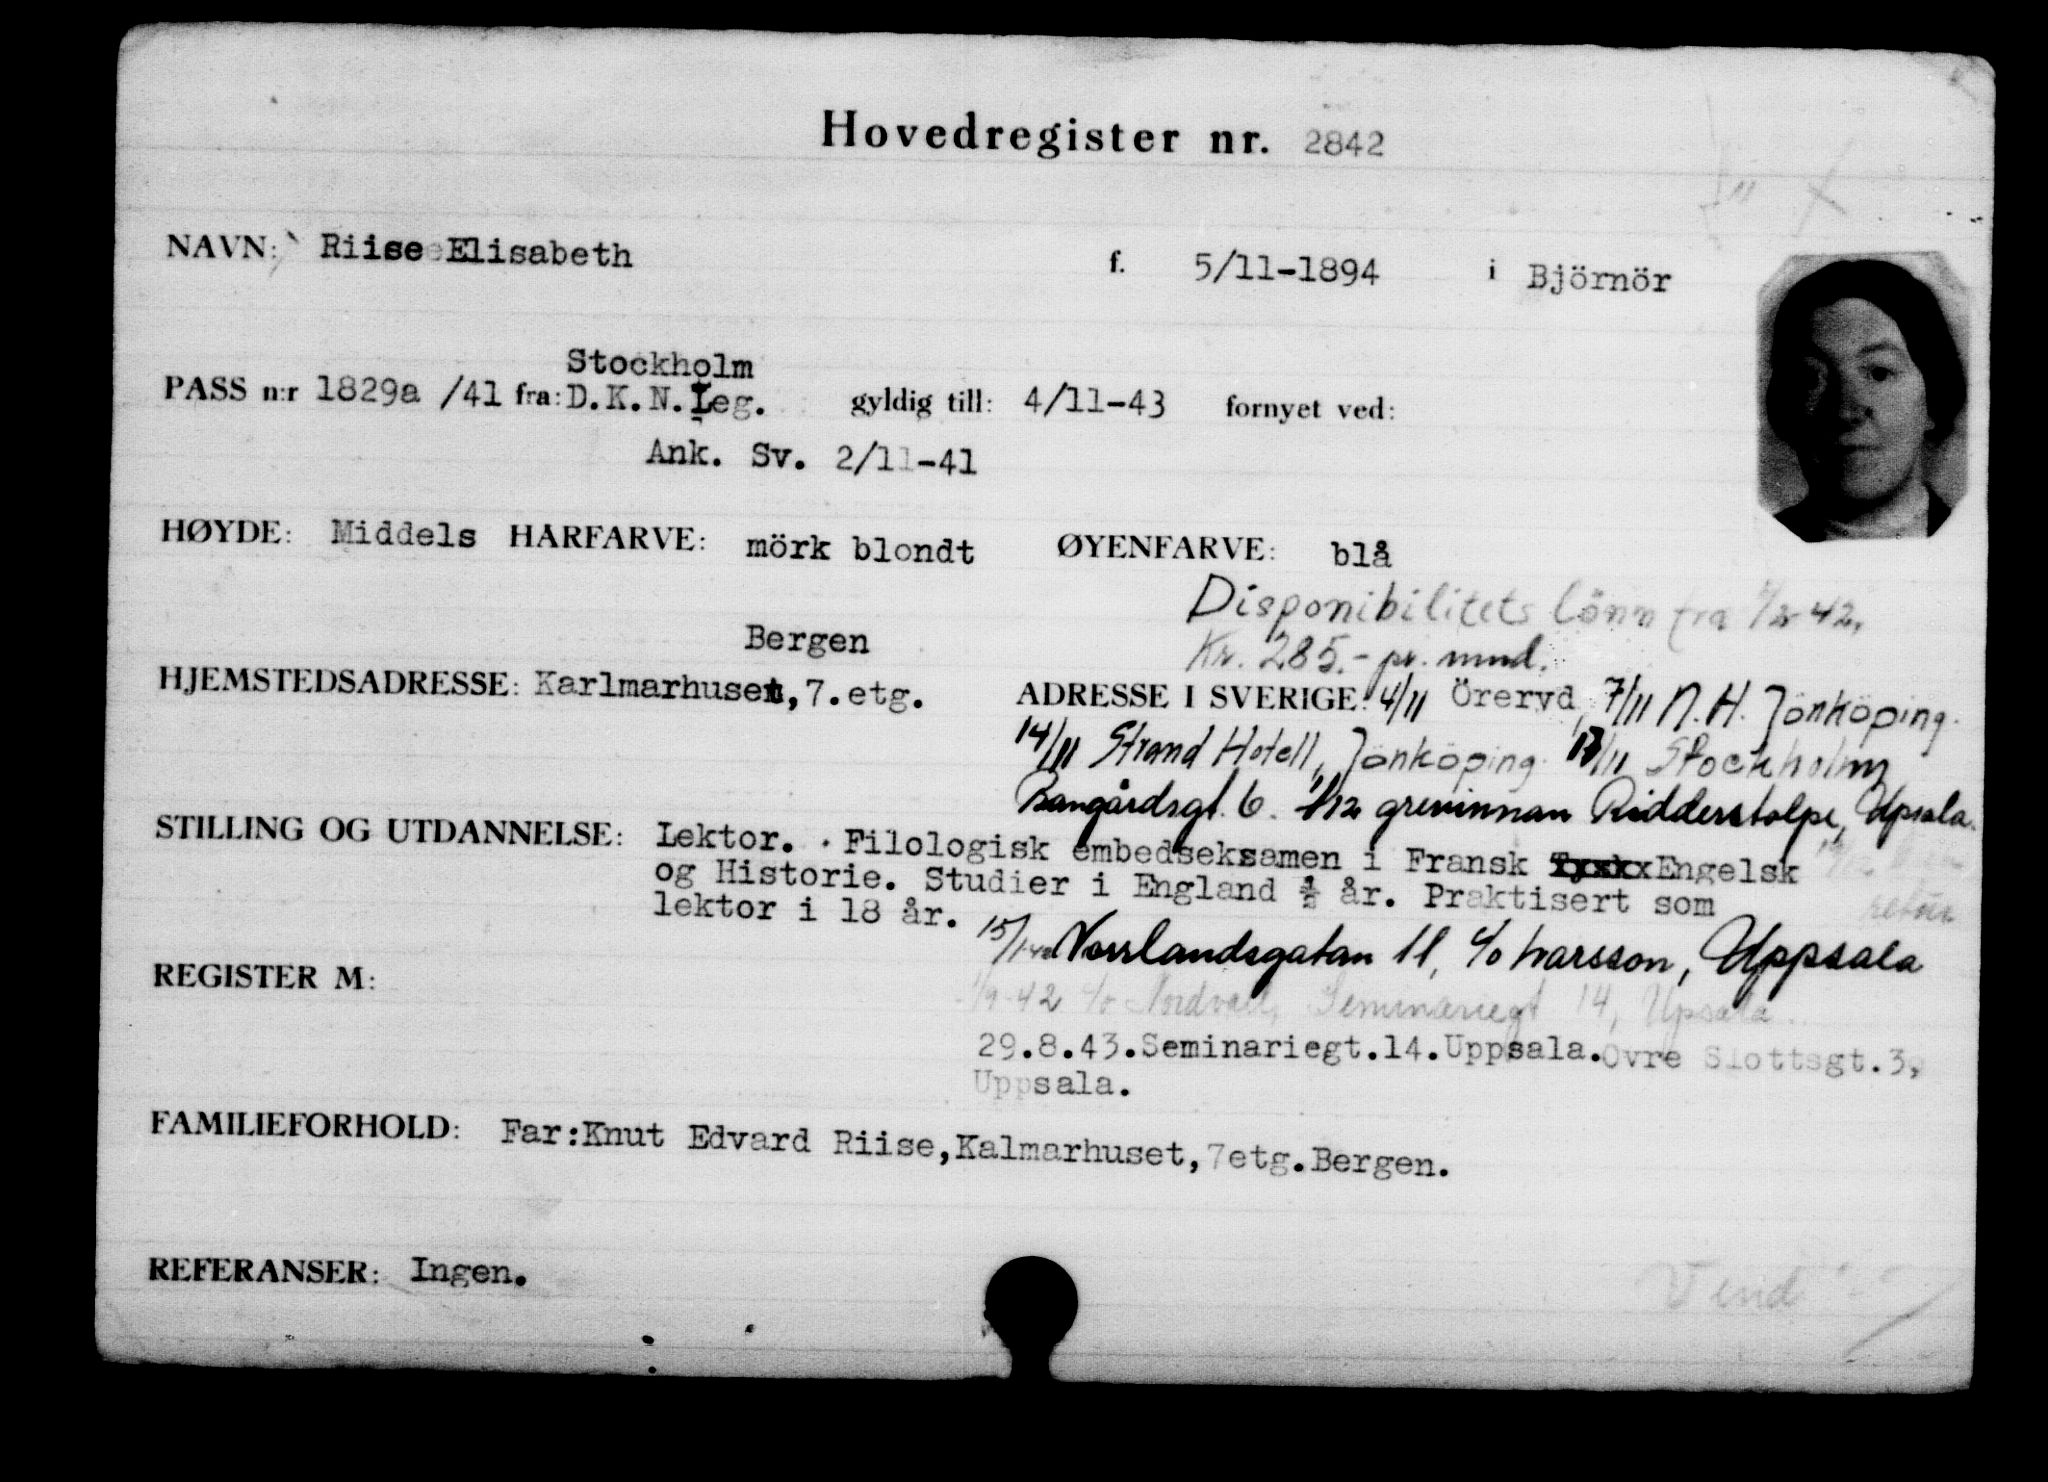 Hovedregister nr. 2842
NAVN: Riise Elisabeth f. 5/11-1894 i Björnör
Stockholm
PASS n:r 1829a /41 fra: D.K.N.Leg. gyldig till: 4/11-43 fornyet ved:
Ank. Sv. 2/11-41
HØYDE: Middels HARFARVE: mörk blondt ØYENFARVE: blå
Disponibilitets lönn fra 1/2 42,
Kr. 285.- pr. mnd.
Bergen
HJEMSTEDSADRESSE: Karlmarhuset, 7. etg.
ADRESSE I SVERIGE: 4/11 Öreryd, 7/11 N.H. Jönköping.
14/11 Strand Hotell, Jönköping. 17/11 Stockholm
Bangårdsgt. 6. 1/12 grevinnan Ridderstolpe, Upsala.
STILLING OG UTDANNELSE: Lektor. Filologisk embedseksamen i Fransk Engelsk
og Historie. Studier i England ½ år. Praktisert som
lektor i 18 år.
retur
15/1-42 Norrlandsgatan 11, c/o Ivarsson, Uppsala
REGISTER M:
1/9-42 c/o Nordvall, Seminariegt 14, Upsala.
29.8.43. Seminariegt.14. Uppsala. Ovre Slottsgt.3,
Uppsala.
FAMILIEFORHOLD: Far: Knut Edvard Riise, Kalmarhuset, 7etg. Bergen.
REFERANSER: Ingen.
Vend